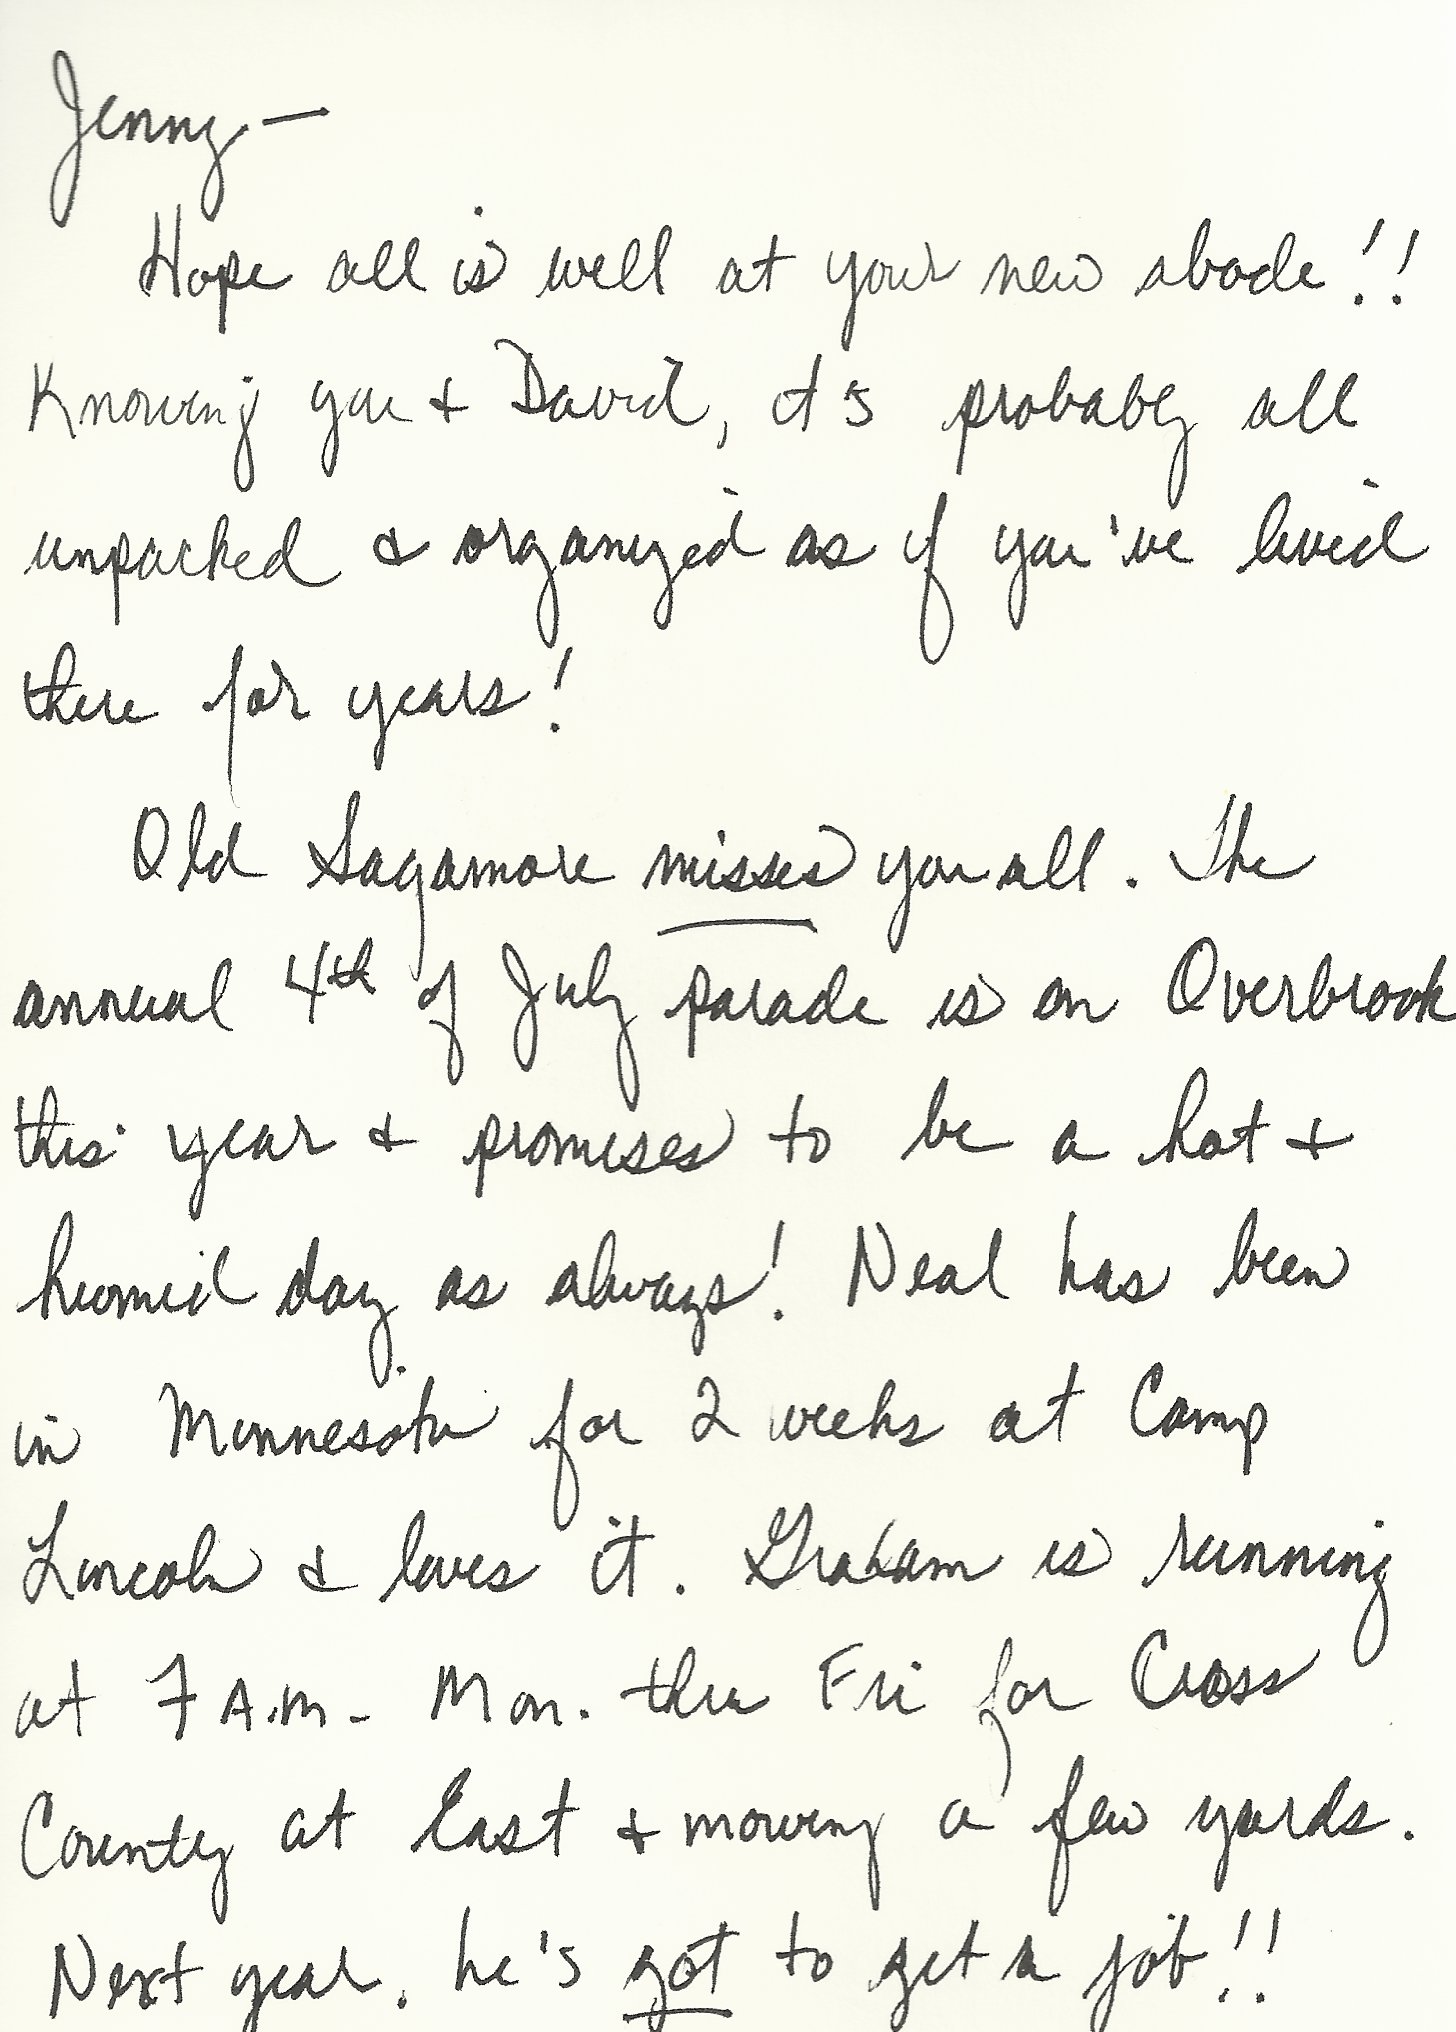 Jenny —
Hope all is well at your new abode!!
Knowing you + David, it's probably all
unpacked & organized as if you've lived
there for years!
Old Sagamore misses you all. The
annual 4th of July parade is on Overbrook
this year + promises to be a hot +
humid day as always! Neal has been
in Minnesota for 2 weeks at Camp
Lincoln & loves it. Graham is running
at 7 A.M. - Mon. thru Fri for Cross
County at East + mowing a few yards.
Next year, he's got to get a job!!